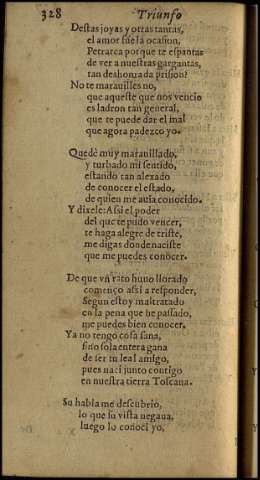 328 Triunfo
Destas joyas y otras tantas,
el amor fue la ocasion,
Petrarca porque te espantas
de ver a nuestras gargantas,
tan deshonrada prision?
No te marauilles no,
que aqueste que nos vencio
es ladron tan general,
que te puede dar el mal
que agora padezco yo.
Quedè muy marauillado,
y turbado mi sentido,
estando tan alexado
de conocer el estado,
de quien me auia conocido.
Y dixele: Assi el poder
del que te pudo vencer,
te haga alegre de triste,
me digas donde naciste
que me puedes conocer.
De que vn rato huuo llorado
començo assi a responder,
Segun estoy maltratado
en la pena que he passado,
me puedes bien conocer.
Ya no tengo cosa sana,
sino sola entera gana
de ser tu leal amigo,
pues naci junto contigo
en nuestra tierra Toscana.
Su habla me descubrio,
lo que su vista negaua,
luego lo conoci yo,